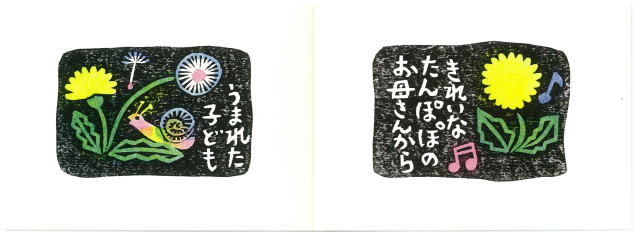 きれいな
たんぽぽの
お母さんから
うまれた
子ども